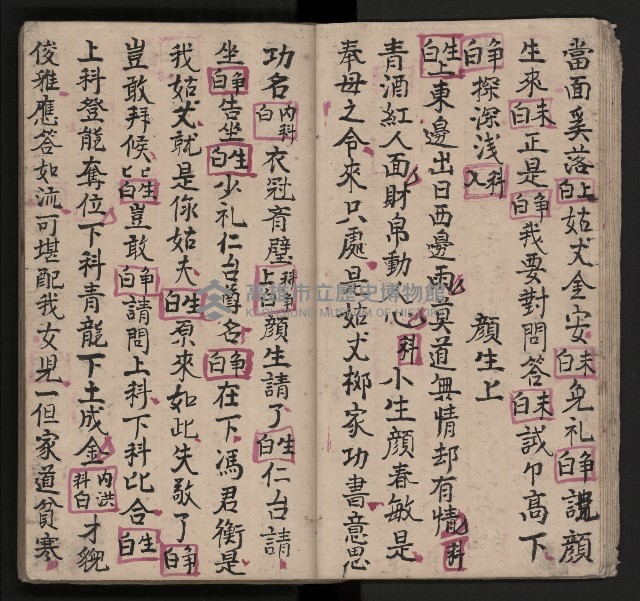 當面奚落上白姑丈金安末白免礼争白說顏
生來末白正是争白我要對問答末白試卩高下
争白探深浅科入
顏生上
生上白東邊出日西邊雨冥道無情却有情科
青酒紅人面財帛動心科小生顏春敏是
奉母之令來只處是姑丈柳家功書意思
功名内科白衣冠育璧科争上白顏生請了生白仁台請
坐争白告坐生白少礼仁台尊名争白在下馮君衡是
我姑丈就是你姑夫生白原來如此失敬了争白
豈敢拜候匕生匕白豈敢争白請問上科下科比合生白
上科登能奪位下科青龍下土成金内洪科白才貌
俊雅應答如流可堪配我女児一但家道貧寒
高雄市立歷史博物館
KAOHSIUNG MUSEUM OF HISTORY